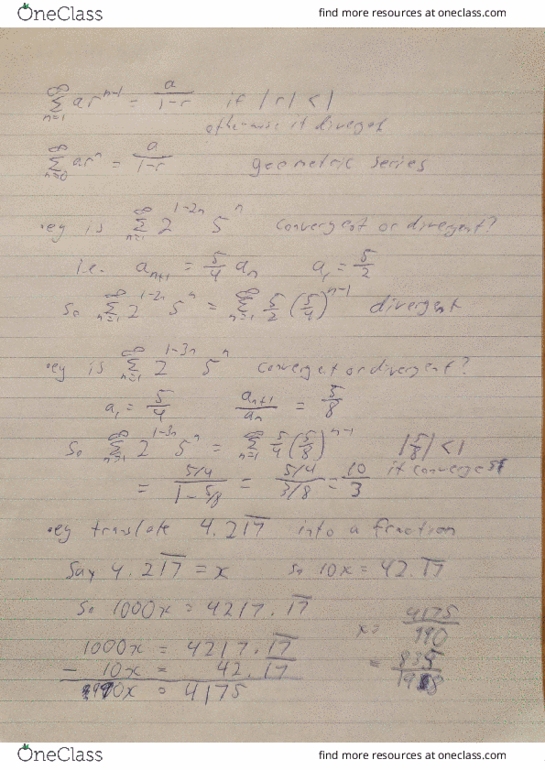 OneClass find more resources at oneclass.com
∞Σn=1 ar^(n-1) = a/(1-r) if |r| < 1
otherwise it diverges
∞Σn=0 ar^n = a/(1-r) geometric series
•eg is ∞Σn=1 2^(1-2n) 5^n convergent or divergent?
i.e. a_(n+1) = 5/4 a_n a_1 = 5/2
So ∞Σn=1 2^(1-2n) 5^n = ∞Σn=1 5/2 (5/4)^(n-1) divergent
•eg is ∞Σn=1 2^(1-3n) 5^n converget or divergent?
a_1 = 5/4 a_(n+1)/a_n = 5/8
So ∞Σn=1 2^(1-3n) 5^n = ∞Σn=1 5/4 (5/8)^(n-1) |5/8| < 1
= (5/4)/(1-5/8) = (5/4)/(3/8) = 10/3 it converges
•eg translate 4.217 into a fraction
Say 4.217 = x so 10x = 42.17
So 1000x = 4217.17
x = 4175/990
1000x = 4217.17
- 10x = 42.17
= 835/198
990x = 4175
OneClass find more resources at oneclass.com